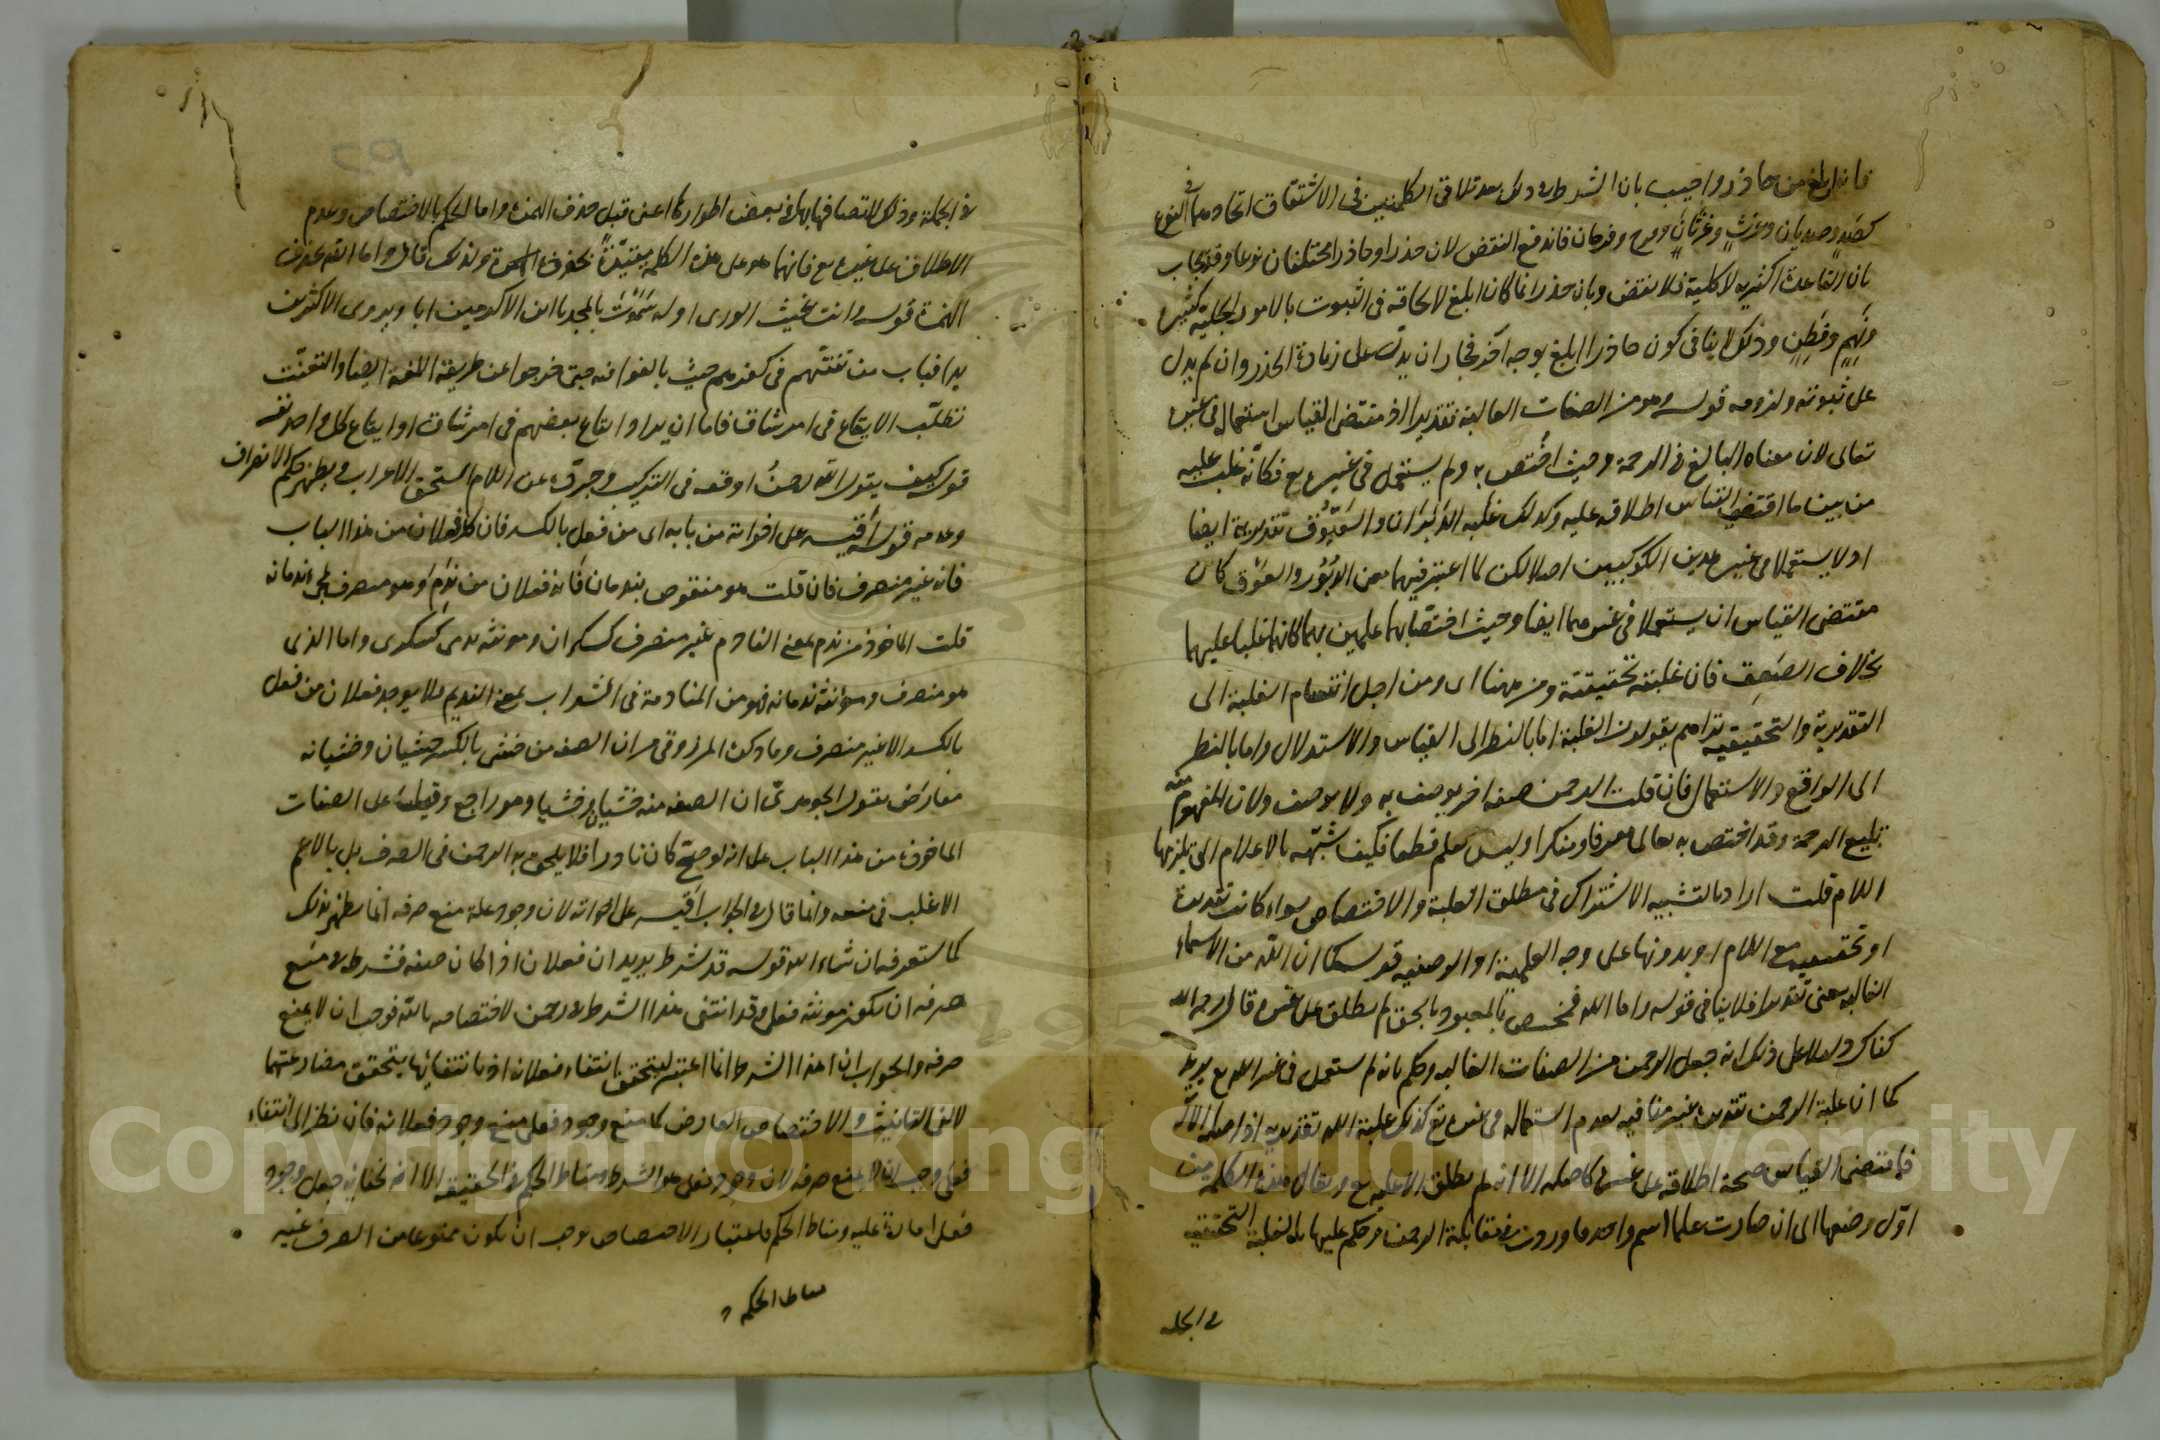 فانه ابلغ من حاذر واجيب بان الشرط في ذلك بعد تلاقي الكلمتين في الاشتقاق اتحادهما في النوع
كصد وصديان وغرث وغرثان وفرح وفرحان فاندفع النقض لان حذرا وحاذرا مختلفان نوعا وقد يجاب
بان القاعدة اكثرية لا كلية فلا نقض وبان حذرا انما كان ابلغ لالحاقه في الثبوت بالامور الجبلية كشره
ونهم وفطن وذلك لا ينافي كون حاذرا ابلغ بوجه آخر فجاز ان يدل على زيادة الحذر وان لم يدل
على ثبوته ولزومه قوله وهو من الصفات الغالبة تقديرا اذ مقتضى القياس استعماله في غيره
تعالى لان معناه البالغ في الرحمة وحيث اختص به ولم يستعمل في غيره تع فكأنه غلب عليه
من بين ما اقتضى القياس اطلاقه عليه وكذلك غلبه الدبران والعيوق تقديرية ايضا
اذ لا يستعملا في غير هذين الكوكبين اصلا لكن لما اعتبر فيهما معنى الدبور والعوق كان
مقتضى القياس ان يستعملا في غيرهما ايضا وحيث اختصا بهما علمين لهما كانهما غلبا عليهما
بخلاف الصعق فان غلبته تحقيقية ومن ههنا اى ومن اجل انقسام الغلبة الى
التقديرية والتحقيقية تراهم يقولون الغلبة اما بالنظر الى القياس والاستدلال واما بالنظر
الى الواقع والاستعمال فان قلت الرحمن صفة اخر يوصف به ولا يوصف ولان المفهوم منه
تبليغ الرحمة وقد اختص به تعالى معرفا ومنكرا وليس بعلم قطعا فكيف شبهه بالاعلام التي يلزمها
اللام قلت اراد بالتشبيه الاشتراك في مطلق الغلبة والاختصاص سواء كانت تقديرية
او تحقيقية مع اللام او بدونها على وجه العلمية او الوصفية قوله كما ان الله من الاسماء
الغالبة يعنى تقديرا فلا ينافي قوله واما الله فمختص بالمعبود بالحق لم يطلق على غيره قال رحمه الله
كفاك دليلا على ذلك انه جعل الرحمن من الصفات الغالبة وحكم بانه لم يستعمل في غير الله تع يريد
كما ان غلبة الرحمن تقديرية غير منافيه لعدم استعماله في غيره تع كذلك غلبة الله تقديرية اذ اصله الاله
فمقتضى القياس صحة اطلاقه على غيره كاصله الا انه لم يطلق الا عليه تع ويقال هذه الكلمة من
اول وضعها الى ان صارت علما اسم واحد ما وردت في مقابلة الرحمن فحكم عليها بالغلبة التحقيقية
في الجملة
في الجملة وذلك لاتصافها بها في بعض اطوارها اعنى قبل حذف الهمزة واما الحكم بالاختصاص وعدم
الاطلاق على غيره تع فانما هو على هذه الكلمة مقيدة بحذف الهمزة ولذلك قال واما الله بحذف
الهمزة قوله وانت غيث الورى اوله سموت بالمجد يا ابن الاكرمين ابا ويروى الاكثرين
يدا فباب من تعنتهم في كفرهم حيث بالغوا فيه حتى خرجوا عن طريقة اللغة ايضا والتعنت
تطلب الايقاع في امر شاق فاما ان يراد ايقاع بعضهم في امر شاق او ايقاع كل واحد نفسه
قوله كيف يقول الله رحمن اوقعه في التركيب وجرده عن اللام ليستحق الاعراب ويظهر حكم الانصراف
وعدمه قوله اقيسه على اخواته من بابه اى من فعل بالكسر فان كل فعلان من هذا الباب
فانه غير منصرف فان قلت هو منقوض بندمان فانه فعلان من ندم وهو منصرف لمجئ ندمانة
قلت المأخوذ من ندم بمعنى النادم غير منصرف كسكران ومونثه ندمى كسكرى واما الذي
هو منصرف ومؤنثه ندمانة فهو من المنادمة في الشراب بمعنى النديم فلا يوجد فعلان من فعل
بالكسر الا غير منصرف وما ذكره المرزوقي من ان الصفة من خشى بالكسر خشيان وخشيانة
معارض بقول الجوهري ان الصفة منه خشيان وخشيا وهو راجح وقياسه على الصفات
الماخوذة من هذا الباب على انه لو صح كان نادرا فلا يلحق به الرحمن في الصرف بل بالاعم
الاغلب في منعه وانما قال في الجواب اقيسه على اخواته لان وجود علة منع صرفه انما يظهر بذلك
كما ستعرفه ان شاء الله قوله قد شرط يريد ان فعلان اذا كان صفة فشرطه منع
صرفه ان يكون مونثه فعلى وقد انتفى هذا الشرط في رحمن لاختصاصه بالله فوجب ان لا يمنع
صرفه والجواب ان هذا الشرط انما اعتبر ليتحقق انتفاء فعلانة اذ بانتفائها يتحقق مضارعتهما
لالفى التانيث والاختصاص العارض كما منع وجود فعلى منع وجود فعلانة فان نظر الى انتفاء
فعلى وجب ان لا يمنع صرفه لان وجود فعلى هو الشرط ومناط الحكم في الحقيقة الا انه لخفائه جعل وجود
فعلى امارة عليه ومناط الحكم فاعتبار الاختصاص يوجب ان يكون ممنوعا من الصرف غيه
مناط الحكم